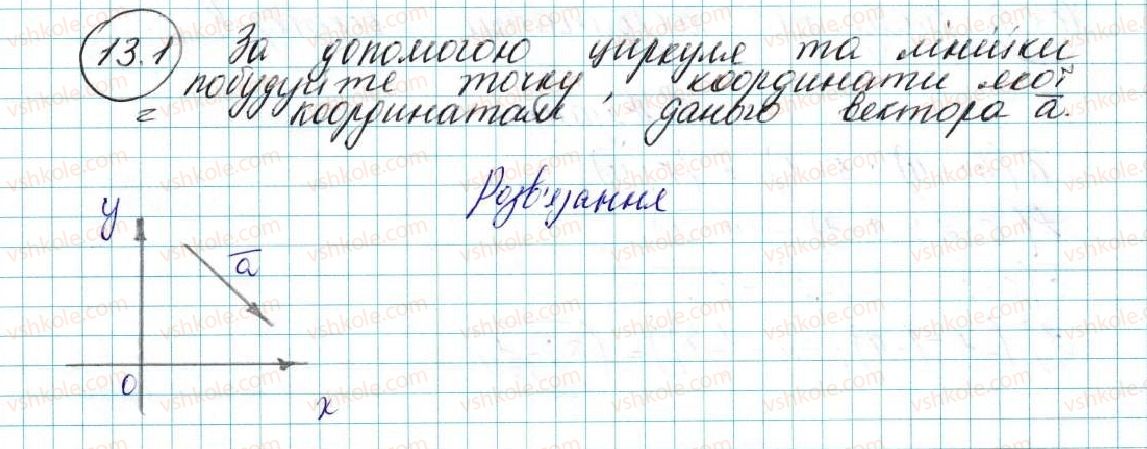 13.1 За допомогою циркуля та лінійки
побудуйте точку, координати якої
= координатам даного вектора a̅.
Розв'язання
y
a̅
0
x